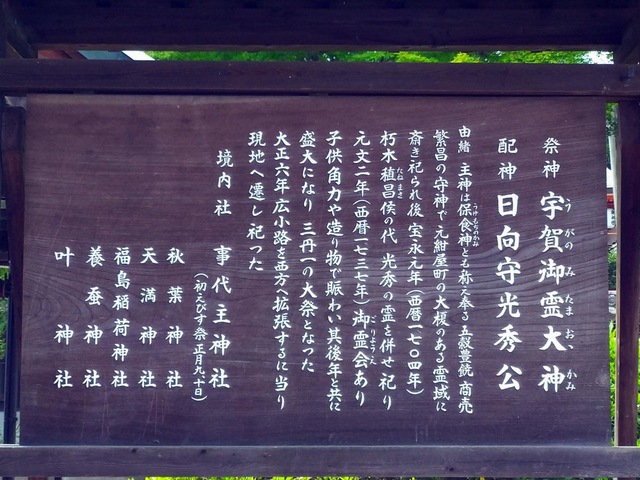 祭神 宇賀御霊大神
うがのみたまおゝかみ
配神 日向守光秀公
由緒 主神は保食神とも称え奉る五穀豊饒 商売
うけもちのかみ
繁昌の守神で元紺屋町の大榎のある霊域に
斎き祀られ後 宝永元年(西暦一七〇四年)
朽木稙昌侯の代 光秀の霊を併せ祀り
たねまさ
元文二年(西暦一七三七年)御霊会あり
ごりょうえ
子供角力や造り物で賑わい其後年と共に
盛大になり 三丹一の大祭となった
大正六年広小路を西方へ拡張するに当り
現地へ遷し祀った
境内社 事代主神社
(初えびす祭正月九、十日)
秋葉神社
天満神社
福島稲荷神社
養蚕神社
叶神社